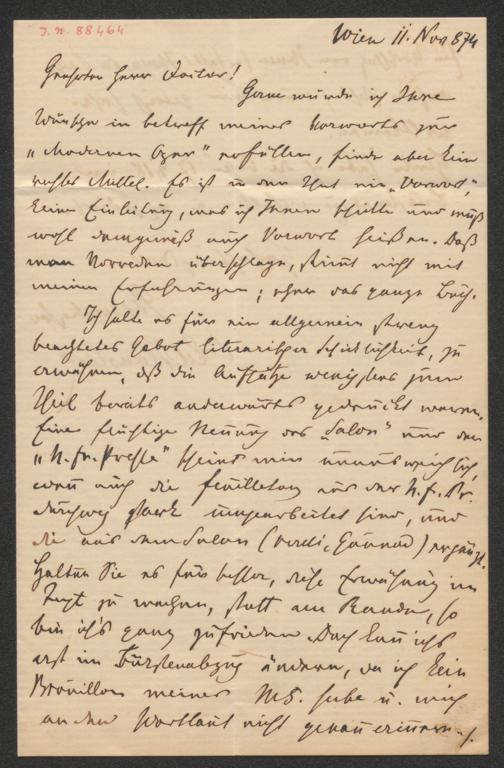 J.N. 88464
Wien 11. Nov 874
Geehrter Herr Doctor!
Gerne würde ich Ihre
Wünsche in betreff meines Vorworts zur
"Modernen Oper" erfüllen, finde aber kein
rechtes Mittel. Es ist in der That ein "Vorwort",
keine Einleitung, was ich Ihnen schickte und muß
wohl demgemäß auch Vorwort heißen. Daß
man Vorreden überschlage, stimmt nicht mit
meinen Erfahrungen; eher das ganze Buch.
Ich halte es für ein allgemein streng
beachtetes Gebot literarischer Schicklichkeit, zu
erwähnen, daß die Aufsätze wenigstens zum
Theil bereits anderwärts gedruckt waren.
Eine flüchtige Nennung des "Salon" und der
"N. fr. Presse" scheint mir unausweichlich,
wenn auch die Feuilletons aus der N. f. Pr.
durchweg stark umgearbeitet sind, und
die aus dem Salon (Verdi, Gounod) ergänzt.
Halten Sie es für besser, diese Erwähnung im
Text zu machen, statt am Rande, so
bin ich's ganz zufrieden. Doch kann ich's
erst im Bürstenabzug ändern, da ich kein
Brouillon meines MS. habe u. mich
an den Wortlaut nicht genau erinnere. /.